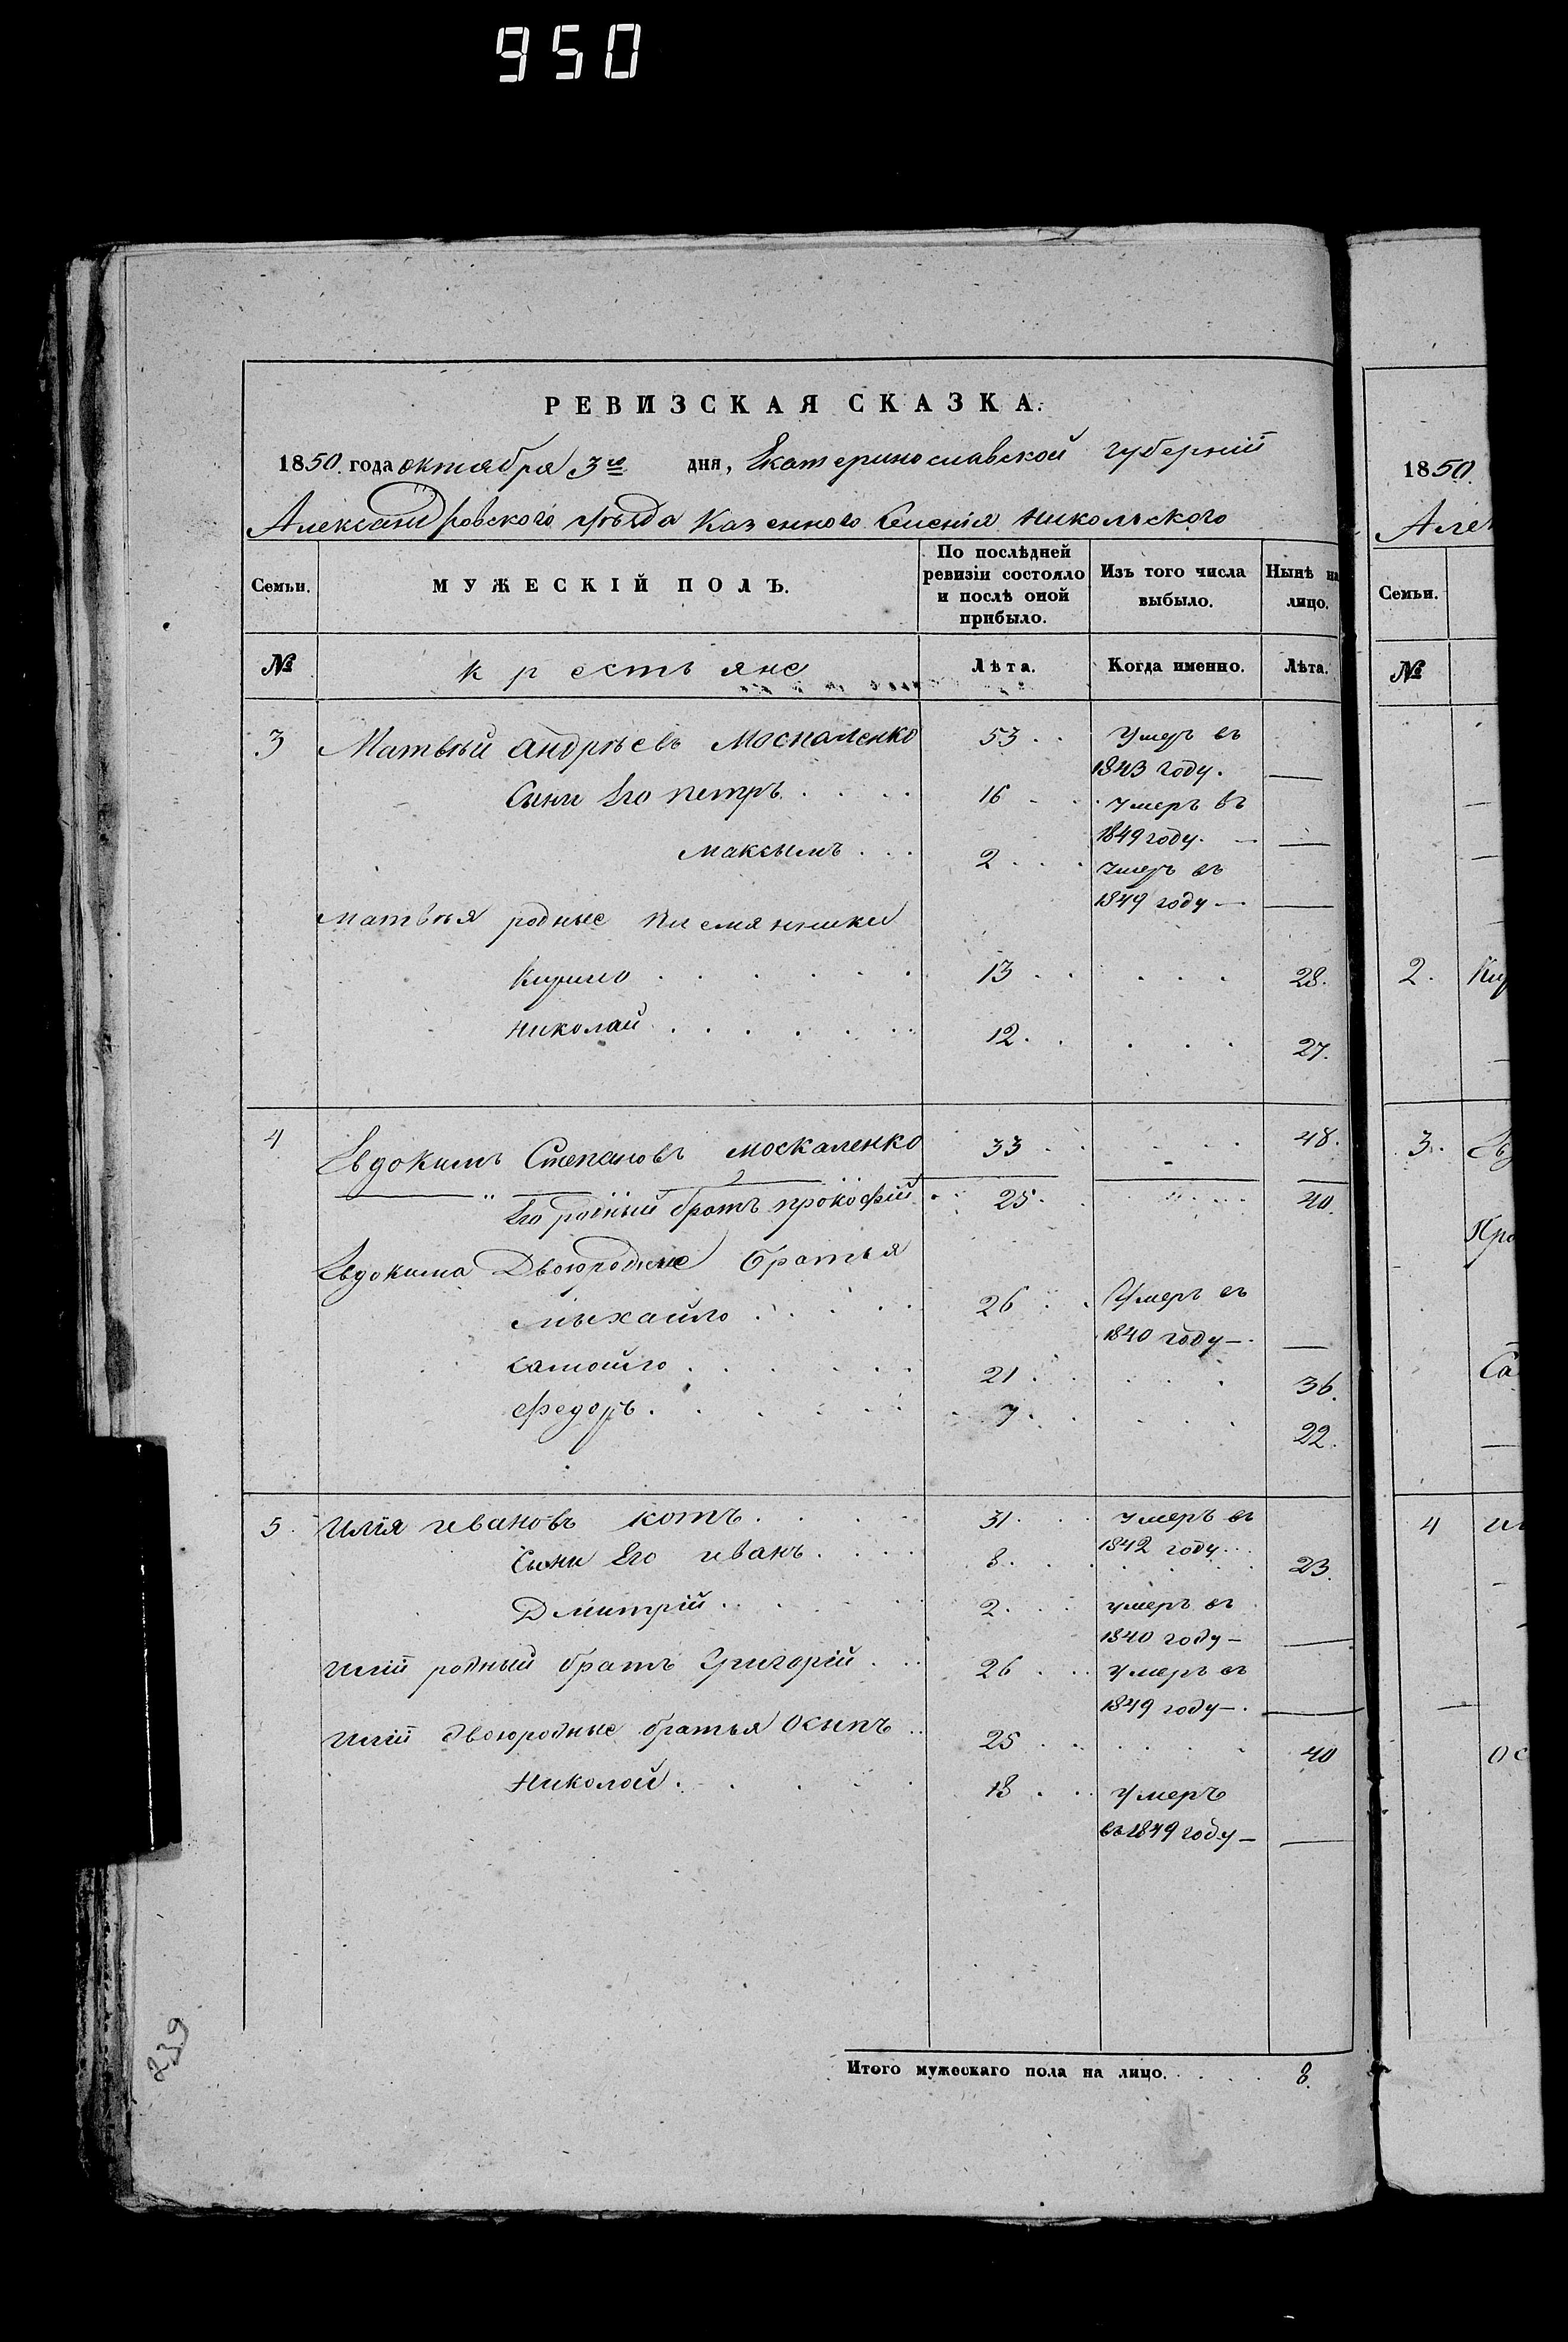 950
РЕВИЗСКАЯ СКАЗКА.
1850. года октября 3го дня, Екатеринославской губерніи
Александровского уѣзда Казенного Селенія Никольского
Семьи. МУЖЕСКІЙ ПОЛЪ. По послѣдней ревизіи состояло и послѣ оной прибыло. Изъ того числа выбыло. Нынѣ на лицо.
№ крестьяне Лѣта. Когда именно. Лѣта.
3 Матвѣй андрѣевъ Москаленко 53 Умеръ въ
1843 году. —
Сыни Его петръ 16 Умеръ въ
1849 году. —
максымъ 2 Умеръ въ
1849 году — —
матвѣя родные племянники
Кирило 13 28.
николай 12. 27.
4 Евдокимъ Степановъ москаленко 33 48.
Его родный братъ прокофій 25. 40.
Евдокима Двоюродные братья
мыхайло 26 Умеръ въ
1840 году —. —
самойло 21 36.
федоръ. 7. 22.
5. Илія ивановъ котъ. 31. Умеръ въ
1842 году
Сыни Его иванъ. 8. 23.
Дмитрій. 2. умеръ въ
1840 году — —
Иліи родный братъ Григорій 26 Умеръ въ
1849 году —. —
Иліи двоюродные братья Осипъ 25 40
Николай. 18 Умеръ
въ 1849 году — —
Итого мужескаго пола на лицо. 8.
239
1850.
Алек
Семьи.
№
2. Кир
3. Ев
Про
Са
4 и
Ос